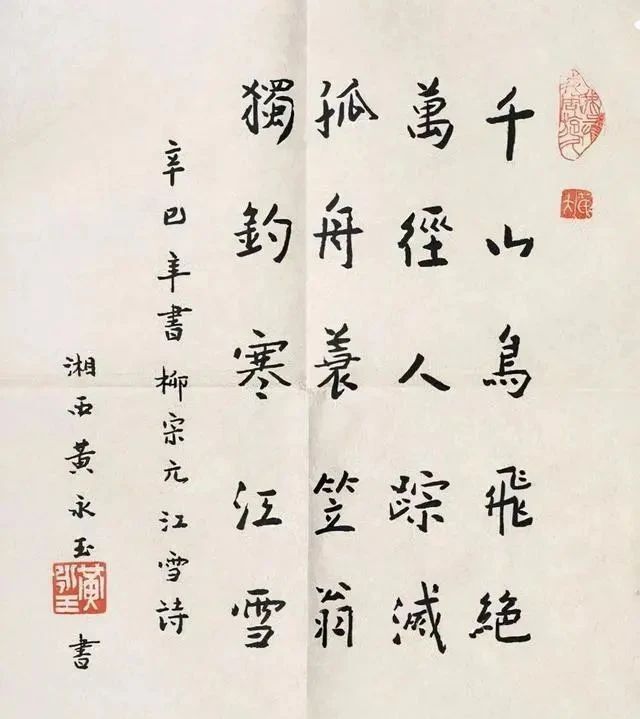 千山鳥飛絕
萬徑人踪滅
孤舟蓑笠翁
獨釣寒江雪
辛巴年書柳宗元江雪詩
湘西黃永玉書
黃永玉